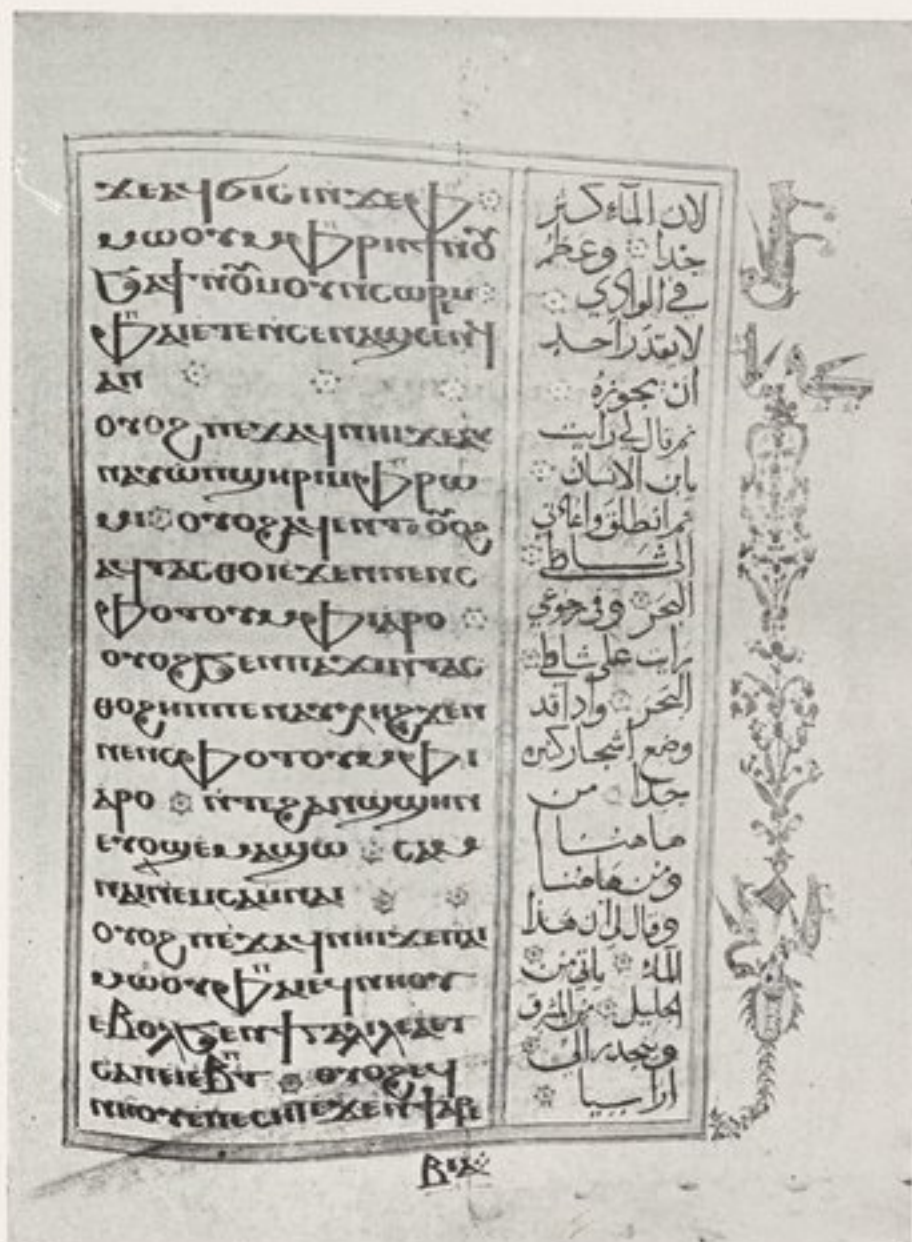 ϫⲉⲁϥϭⲓⲥⲓ ⲛ̀ϫⲉ ⲫ
ⲙⲱⲟⲩ ⲙ̀ⲫⲣⲏϯ ⲛ̀ⲟⲩ
ϧⲁϯ ⲙ̀ⲙⲟⲩⲛⲥⲱⲣⲉⲙ
ⲫⲁⲓ ⲉⲧⲉⲛⲥⲉⲛⲁϣⲥⲉⲛϥ
ⲁⲛ
ⲟⲩⲟϩ ⲡⲉϫⲁϥ ⲛⲏⲓ ϫⲉⲁⲕ
ⲛⲁⲩ ⲱ ⲡϣⲏⲣⲓ ⲙ̀ⲫⲣⲱ
ⲙⲓ ⲟⲩⲟϩ ⲁϥⲉⲛⲧ ⲟⲩⲟϩ
ⲁϥⲧⲁⲥⲑⲟⲓ ⲉϫⲉⲛ ⲛⲉⲛⲥ
ⲫⲟⲧⲟⲩ ⲙ̀ⲫⲓⲁⲣⲟ
ⲟⲩⲟϩ ϧⲉⲛ ⲡⲁϫⲓⲛⲧⲁⲥ
ⲑⲟ ϩⲏⲡⲡⲉ ⲛⲁⲩⲭⲏ ϩⲓϫⲉⲛ
ⲛⲉⲛⲥⲫⲟⲧⲟⲩ ⲙ̀ⲫⲓ
ⲁⲣⲟ ⲛ̀ϫⲉ ϩⲁⲛϣϣⲏⲛ
ⲉⲩⲟϣ ⲉⲙⲁϣⲱ ⲥⲁⲙ
ⲛⲁⲓ ⲛⲉⲙ ⲥⲁⲙⲛⲁⲓ
ⲟⲩⲟϩ ⲡⲉϫⲁϥ ⲛⲏⲓ ϫⲉ ⲡⲁⲓ
ⲙⲱⲟⲩ ⲫⲁⲓ ⲉϥⲛⲏⲟⲩ
ⲉⲃⲟⲗ ϧⲉⲛ ϯⲅⲁⲗⲓⲗⲉⲁ ⲉⲧ
ⲥⲁⲡⲉⲓⲉⲃⲧ ⲟⲩⲟϩ ⲉϥ
ⲛⲏⲟⲩ ⲉⲡⲉⲥⲏⲧ ⲉϫⲉⲛ ϯⲁⲣⲉ
لان الماء كثر
جدا وعظم
في الوادي
لا يقدر احد
ان يجوزه
ثم قال لي رايت
يا بن الانسان
ثم انطلق واعادني
الى شاطئ
البحر وفي رجوعي
رايت على شاطئ
البحر واذا قد
وضع اشجار كثيره
جدا من
هاهنا
ومن هاهنا
وقال لي ان هذا
الماء ياتي من
الجليل من المشرق
وينحدر الى
ارابيا